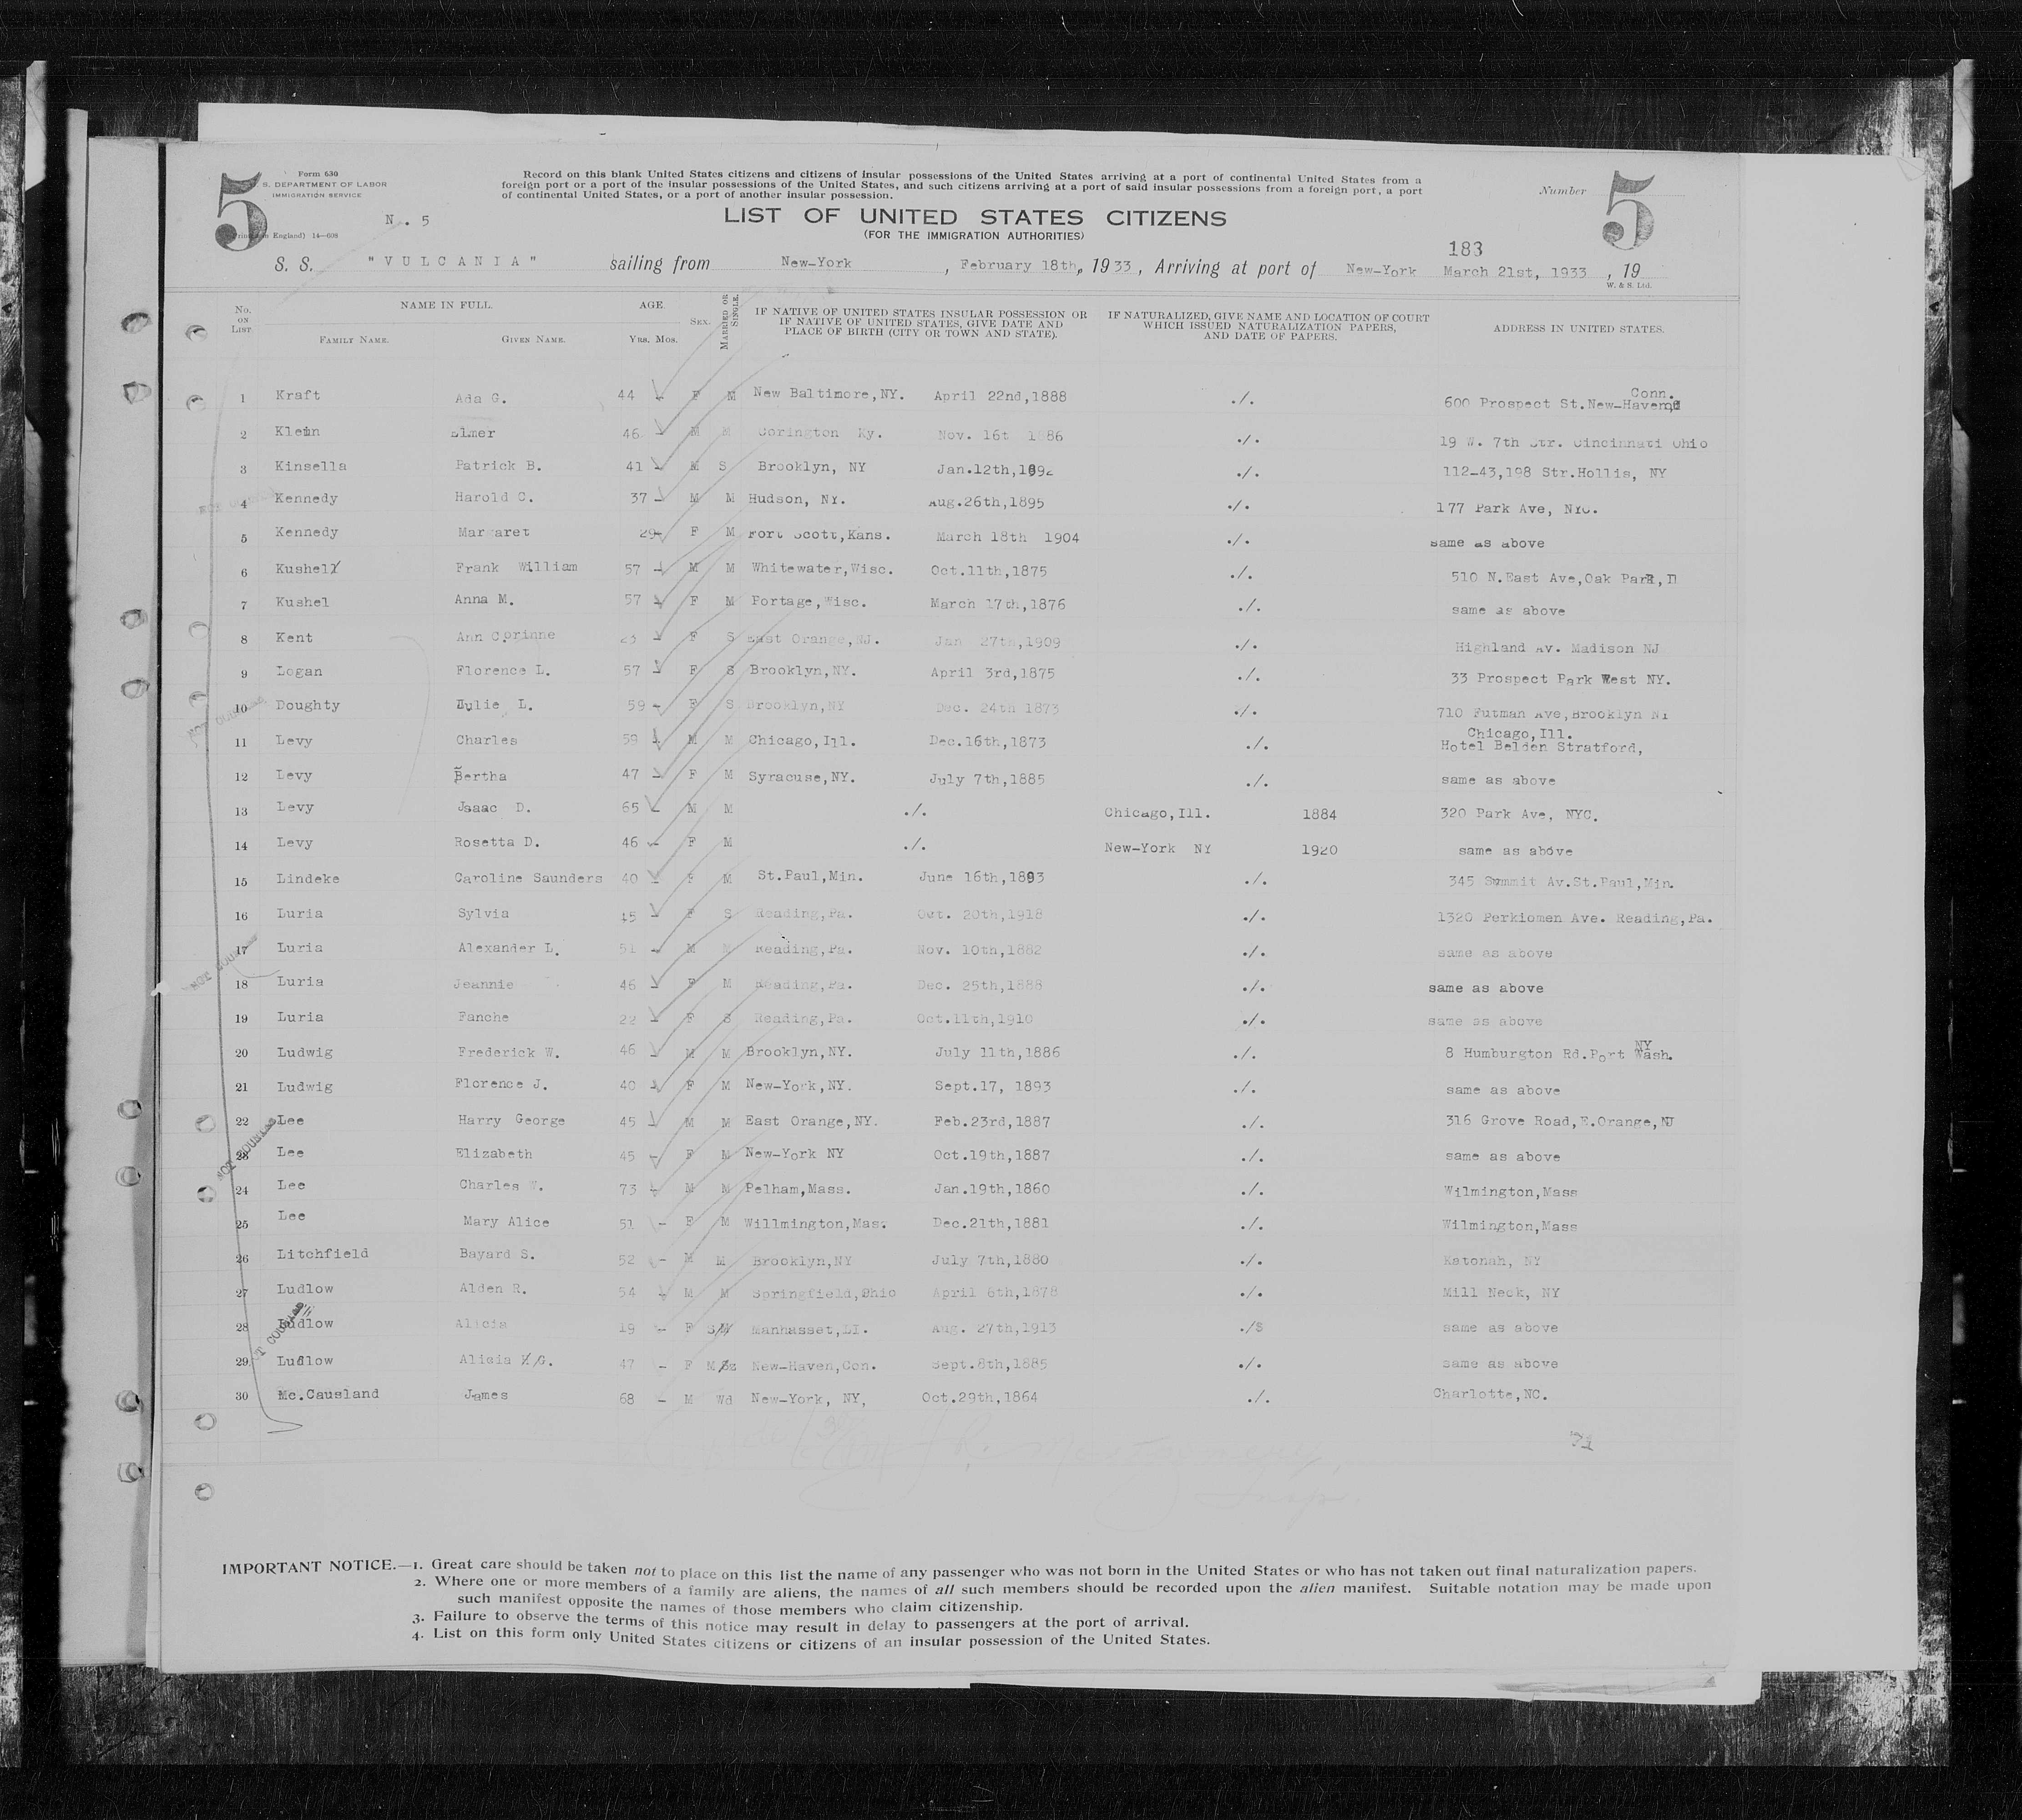 5
Form 630
S. DEPARTMENT OF LABOR
IMMIGRATION SERVICE
N. 5
England) 14—608
Record on this blank United States citizens and citizens of insular possessions of the United States arriving at a port of continental United States from a
foreign port or a port of the insular possessions of the United States, and such citizens arriving at a port of said insular possessions from a foreign port, a port
of continental United States, or a port of another insular possession.
Number 5
LIST OF UNITED STATES CITIZENS
(FOR THE IMMIGRATION AUTHORITIES)
183
S. S. "VULCANIA" sailing from New-York, February 18th, 1933, Arriving at port of New-York March 21st, 1933, 19
W. & S. Ltd.
No. ON LIST. NAME IN FULL. FAMILY NAME. GIVEN NAME. AGE. YRS. MOS. SEX. MARRIED OR SINGLE. IF NATIVE OF UNITED STATES INSULAR POSSESSION OR IF NATIVE OF UNITED STATES, GIVE DATE AND PLACE OF BIRTH (CITY OR TOWN AND STATE). IF NATURALIZED, GIVE NAME AND LOCATION OF COURT WHICH ISSUED NATURALIZATION PAPERS, AND DATE OF PAPERS. ADDRESS IN UNITED STATES.
1 Kraft Ada G. 44 F M New Baltimore,NY. April 22nd,1888 ./. 600 Prospect St.New-Haven, Conn.
2 Klein Elmer 46 M M Corington Ky. Nov. 16t 1886 ./. 19 W. 7th Str. Cincinnati Ohio
3 Kinsella Patrick B. 41 M S Brooklyn, NY Jan.12th,1892 ./. 112-43,198 Str.Hollis, NY
4 Kennedy Harold C. 37 M M Hudson, NY. Aug.26th,1895 ./. 177 Park Ave, NYC.
5 Kennedy Mar aret 29 F M Fort Scott,Kans. March 18th 1904 ./. same as above
6 Kushel Frank William 57 M M Whitewater,Wisc. Oct.11th,1875 ./. 510 N.East Ave,Oak Park,
7 Kushel Anna M. 57 F M Portage,Wisc. March 17th,1876 ./. same as above
8 Kent Ann Corinne 23 F S East Orange,NJ. Jan 27th,1909 ./. Highland Av. Madison NJ
9 Logan Florence L. 57 F S Brooklyn,NY. April 3rd,1875 ./. 33 Prospect Park West NY.
10 Doughty Julie L. 59 F S Brooklyn,NY Dec. 24th 1873 ./. 710 Putman Ave,Brooklyn NY
11 Levy Charles 59 M M Chicago,Ill. Dec.16th,1873 ./. Chicago,Ill. Hotel Belden Stratford,
12 Levy Bertha 47 F M Syracuse,NY. July 7th,1885 ./. same as above
13 Levy Jsaac D. 65 M M ./. Chicago,Ill. 1884 320 Park Ave, NYC.
14 Levy Rosetta D. 46 F M ./. New-York NY 1920 same as above
15 Lindeke Caroline Saunders 40 F M St.Paul,Min. June 16th,1893 ./. 345 Summit Av.St.Paul,Min.
16 Luria Sylvia 15 F S Reading,Pa. Oct. 20th,1918 ./. 1320 Perkiomen Ave. Reading,Pa.
17 Luria Alexander L. 51 M M Reading,Pa. Nov. 10th,1882 ./. same as above
18 Luria Jeannie 46 F M Reading,Pa. Dec. 25th,1888 ./. same as above
19 Luria Fanche 22 F S Reading,Pa. Oct.11th,1910 ./. same as above
20 Ludwig Frederick W. 46 M M Brooklyn,NY. July 11th,1886 ./. 8 Humburgton Rd.Port Wash. NY
21 Ludwig Florence J. 40 F M New-York,NY. Sept.17, 1893 ./. same as above
22 Lee Harry George 45 M M East Orange,NY. Feb.23rd,1887 ./. 316 Grove Road,E.Orange,NJ
23 Lee Elizabeth 45 F M New-York NY Oct.19th,1887 ./. same as above
24 Lee Charles W. 73 M M Pelham,Mass. Jan.19th,1860 ./. Wilmington,Mass
25 Lee Mary Alice 51 F M Willmington,Mas. Dec.21th,1881 ./. Wilmington,Mass
26 Litchfield Bayard S. 52 M M Brooklyn,NY July 7th,1880 ./. Katonah, NY
27 Ludlow Alden R. 54 M M Springfield,Ohio April 6th,1878 ./. Mill Neck, NY
28 Ludlow Alicia 19 F S Manhasset,LI. Aug. 27th,1913 ./S same as above
29 Ludlow Alicia G. 47 F M New-Haven,Con. Sept.8th,1885 ./. same as above
30 Mc.Causland James 68 M Wd New-York, NY, Oct.29th,1864 ./. Charlotte,NC.
NOT COUNTED
IMPORTANT NOTICE.—1. Great care should be taken not to place on this list the name of any passenger who was not born in the United States or who has not taken out final naturalization papers.
2. Where one or more members of a family are aliens, the names of all such members should be recorded upon the alien manifest. Suitable notation may be made upon
such manifest opposite the names of those members who claim citizenship.
3. Failure to observe the terms of this notice may result in delay to passengers at the port of arrival.
4. List on this form only United States citizens or citizens of an insular possession of the United States.